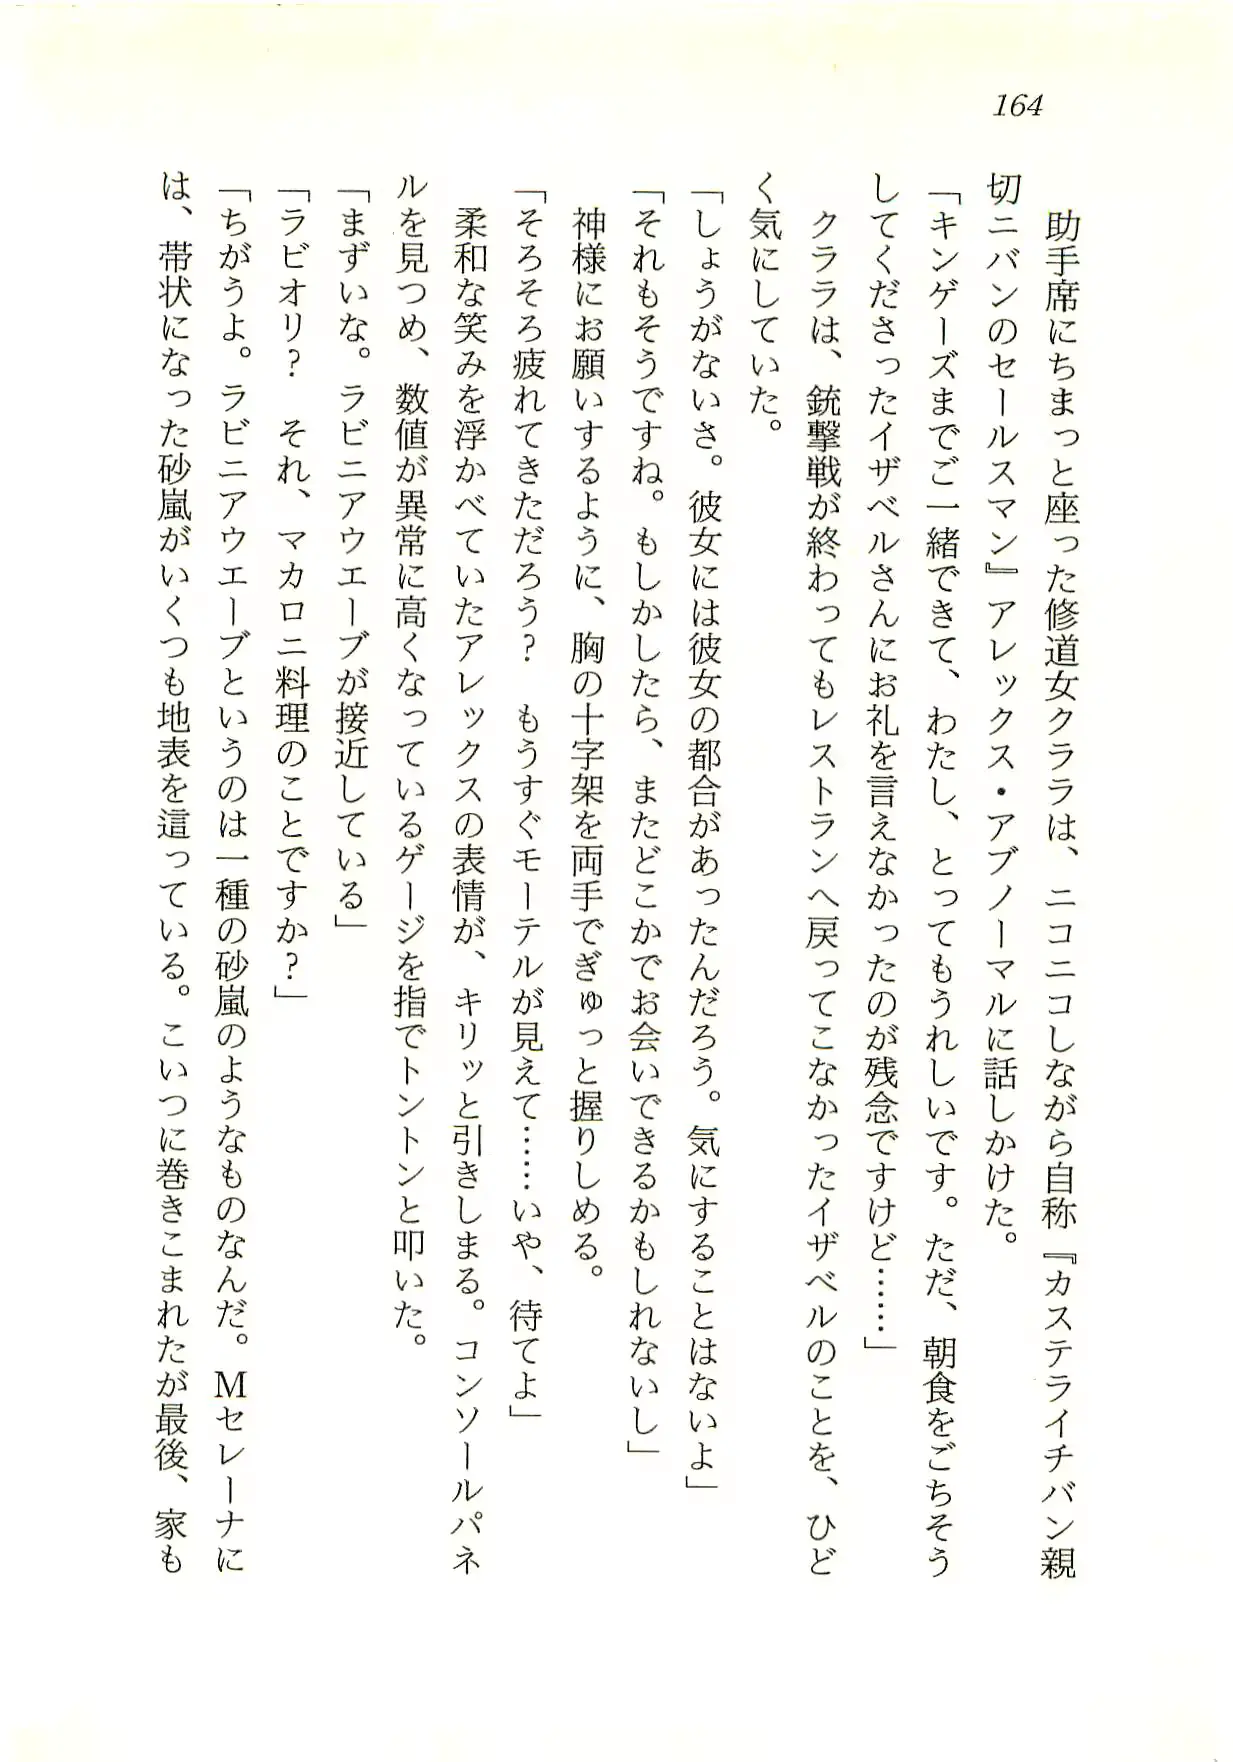 164
　助手席にちまっと座った修道女クララは、ニコニコしながら自称『カステライチバン親
切ニバンのセールスマン』アレックス・アブノーマルに話しかけた。
「キンゲーズまでご一緒できて、わたし、とってもうれしいです。ただ、朝食をごちそう
してくださったイザベルさんにお礼を言えなかったのが残念ですけど……」
　クララは、銃撃戦が終わってもレストランへ戻ってこなかったイザベルのことを、ひど
く気にしていた。
「しょうがないさ。彼女には彼女の都合があったんだろう。気にすることはないよ」
「それもそうですね。もしかしたら、またどこかでお会いできるかもしれないし」
　神様にお願いするように、胸の十字架を両手でぎゅっと握りしめる。
「そろそろ疲れてきただろう？　もうすぐモーテルが見えて……いや、待てよ」
　柔和な笑みを浮かべていたアレックスの表情が、キリッと引きしまる。コンソールパネ
ルを見つめ、数値が異常に高くなっているゲージを指でトントンと叩いた。
「まずいな。ラビニアウエーブが接近している」
「ラビオリ？　それ、マカロニ料理のことですか？」
「ちがうよ。ラビニアウエーブというのは一種の砂嵐のようなものなんだ。Ｍセレーナに
は、帯状になった砂嵐がいくつも地表を這っている。こいつに巻きこまれたが最後、家も